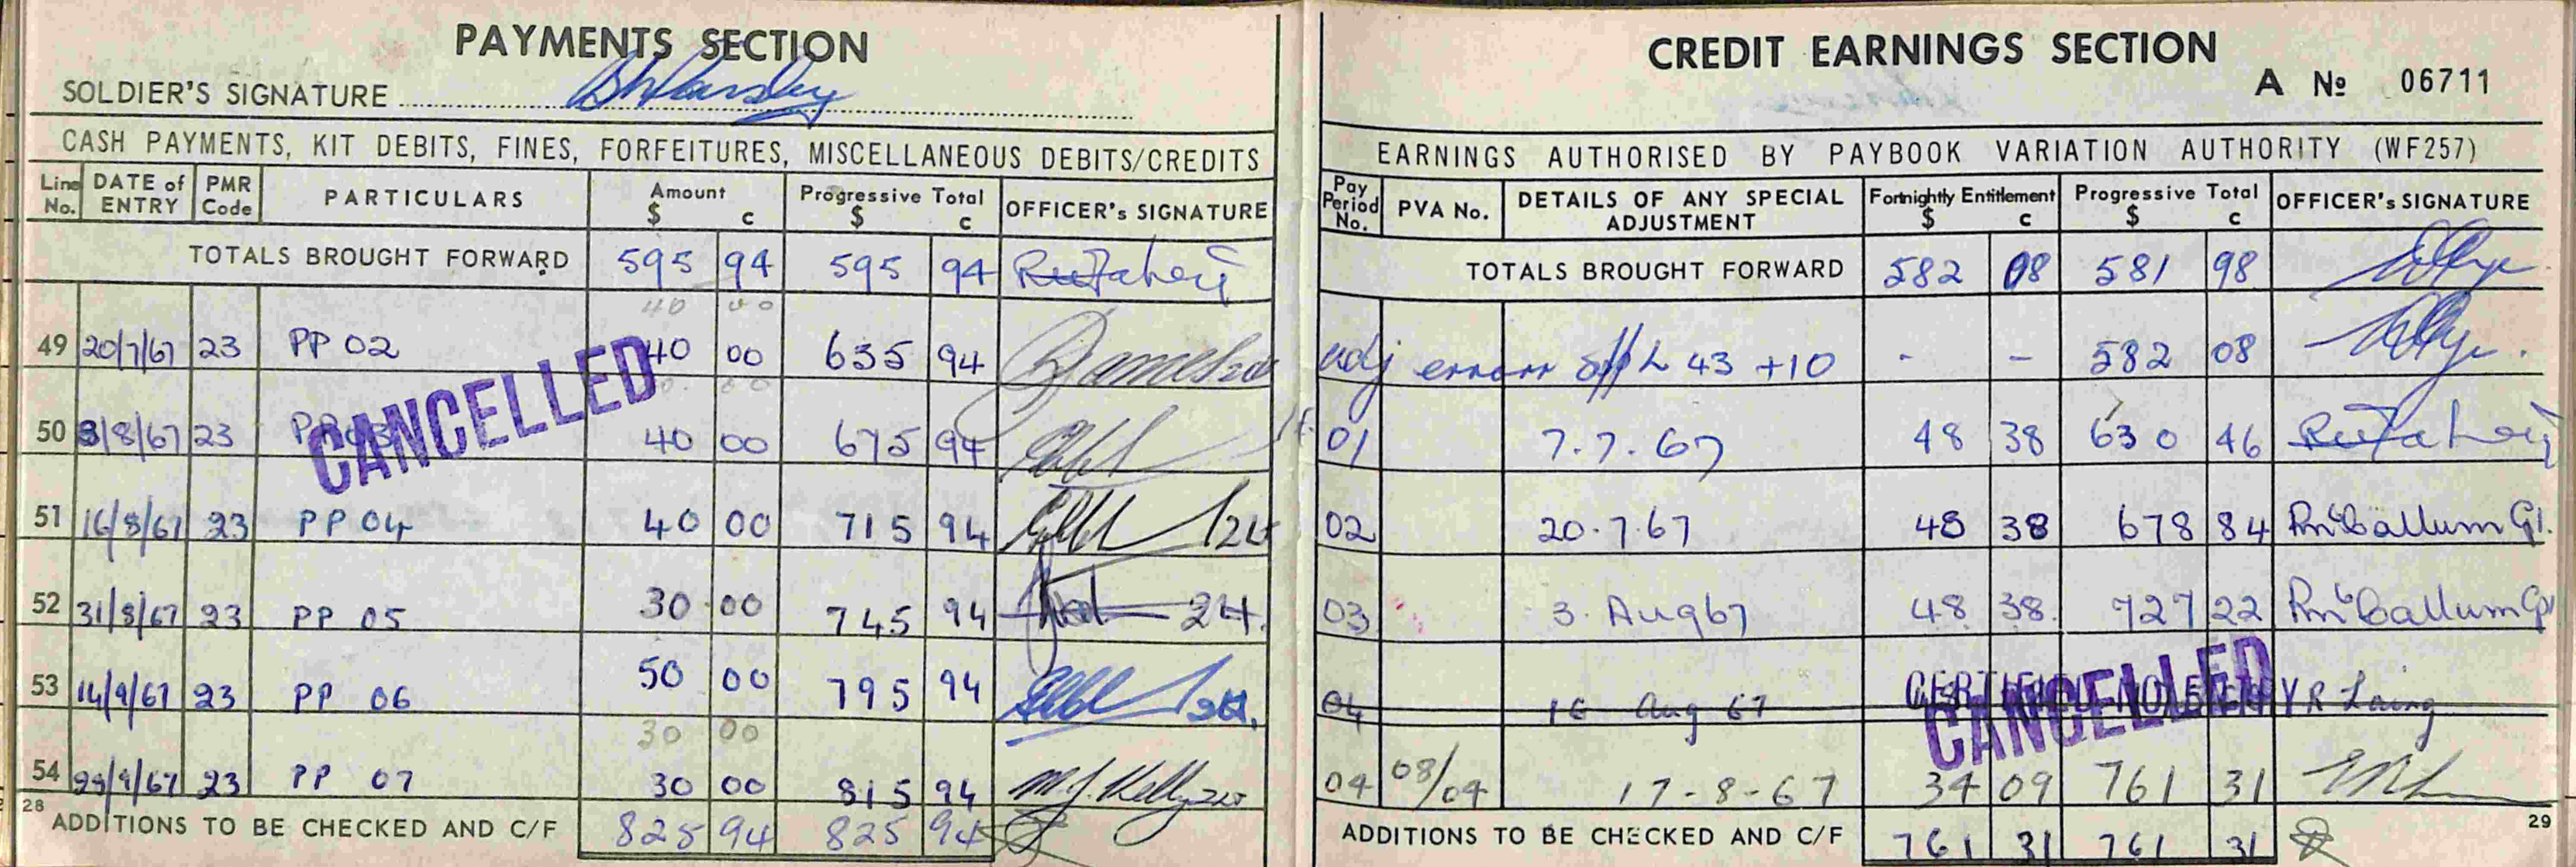 PAYMENTS SECTION
SOLDIER'S SIGNATURE
CASH PAYMENTS, KIT DEBITS, FINES, FORFEITURES, MISCELLANEOUS DEBITS/CREDITS
Line No. DATE of ENTRY PMR Code PARTICULARS Amount $ c Progressive Total $ c OFFICER's SIGNATURE
TOTALS BROUGHT FORWARD 595 94 595 94
40 00
49 20/7/67 23 PP 02 40 00 635 94
50 3/8/67 23 PP 03 40 00 675 94
CANCELLED
51 16/8/67 23 PP 04 40 00 715 94
52 31/8/67 23 PP 05 30 00 745 94 24.
53 14/9/67 23 PP 06 50 00 795 94
30 00
54 29/9/67 23 PP 07 30 00 815 94 M.J. Kelly
28
ADDITIONS TO BE CHECKED AND C/F 825 94 825 94
CREDIT EARNINGS SECTION
A No 06711
EARNINGS AUTHORISED BY PAYBOOK VARIATION AUTHORITY (WF257)
Pay Period No. PVA No. DETAILS OF ANY SPECIAL ADJUSTMENT Fortnightly Entitlement $ c Progressive Total $ c OFFICER's SIGNATURE
TOTALS BROUGHT FORWARD 582 08 581 98
adj error 43 +10 - - 582 08
01 7.7.67 48 38 630 46
02 20.7.67 48 38 678 84 McCallum
03 3 Aug 67 48 38 727 22 McCallum
04 16 Aug 67 R Laing
CANCELLED
04 08/04 17-8-67 34 09 761 31
ADDITIONS TO BE CHECKED AND C/F 761 31 761 31
29